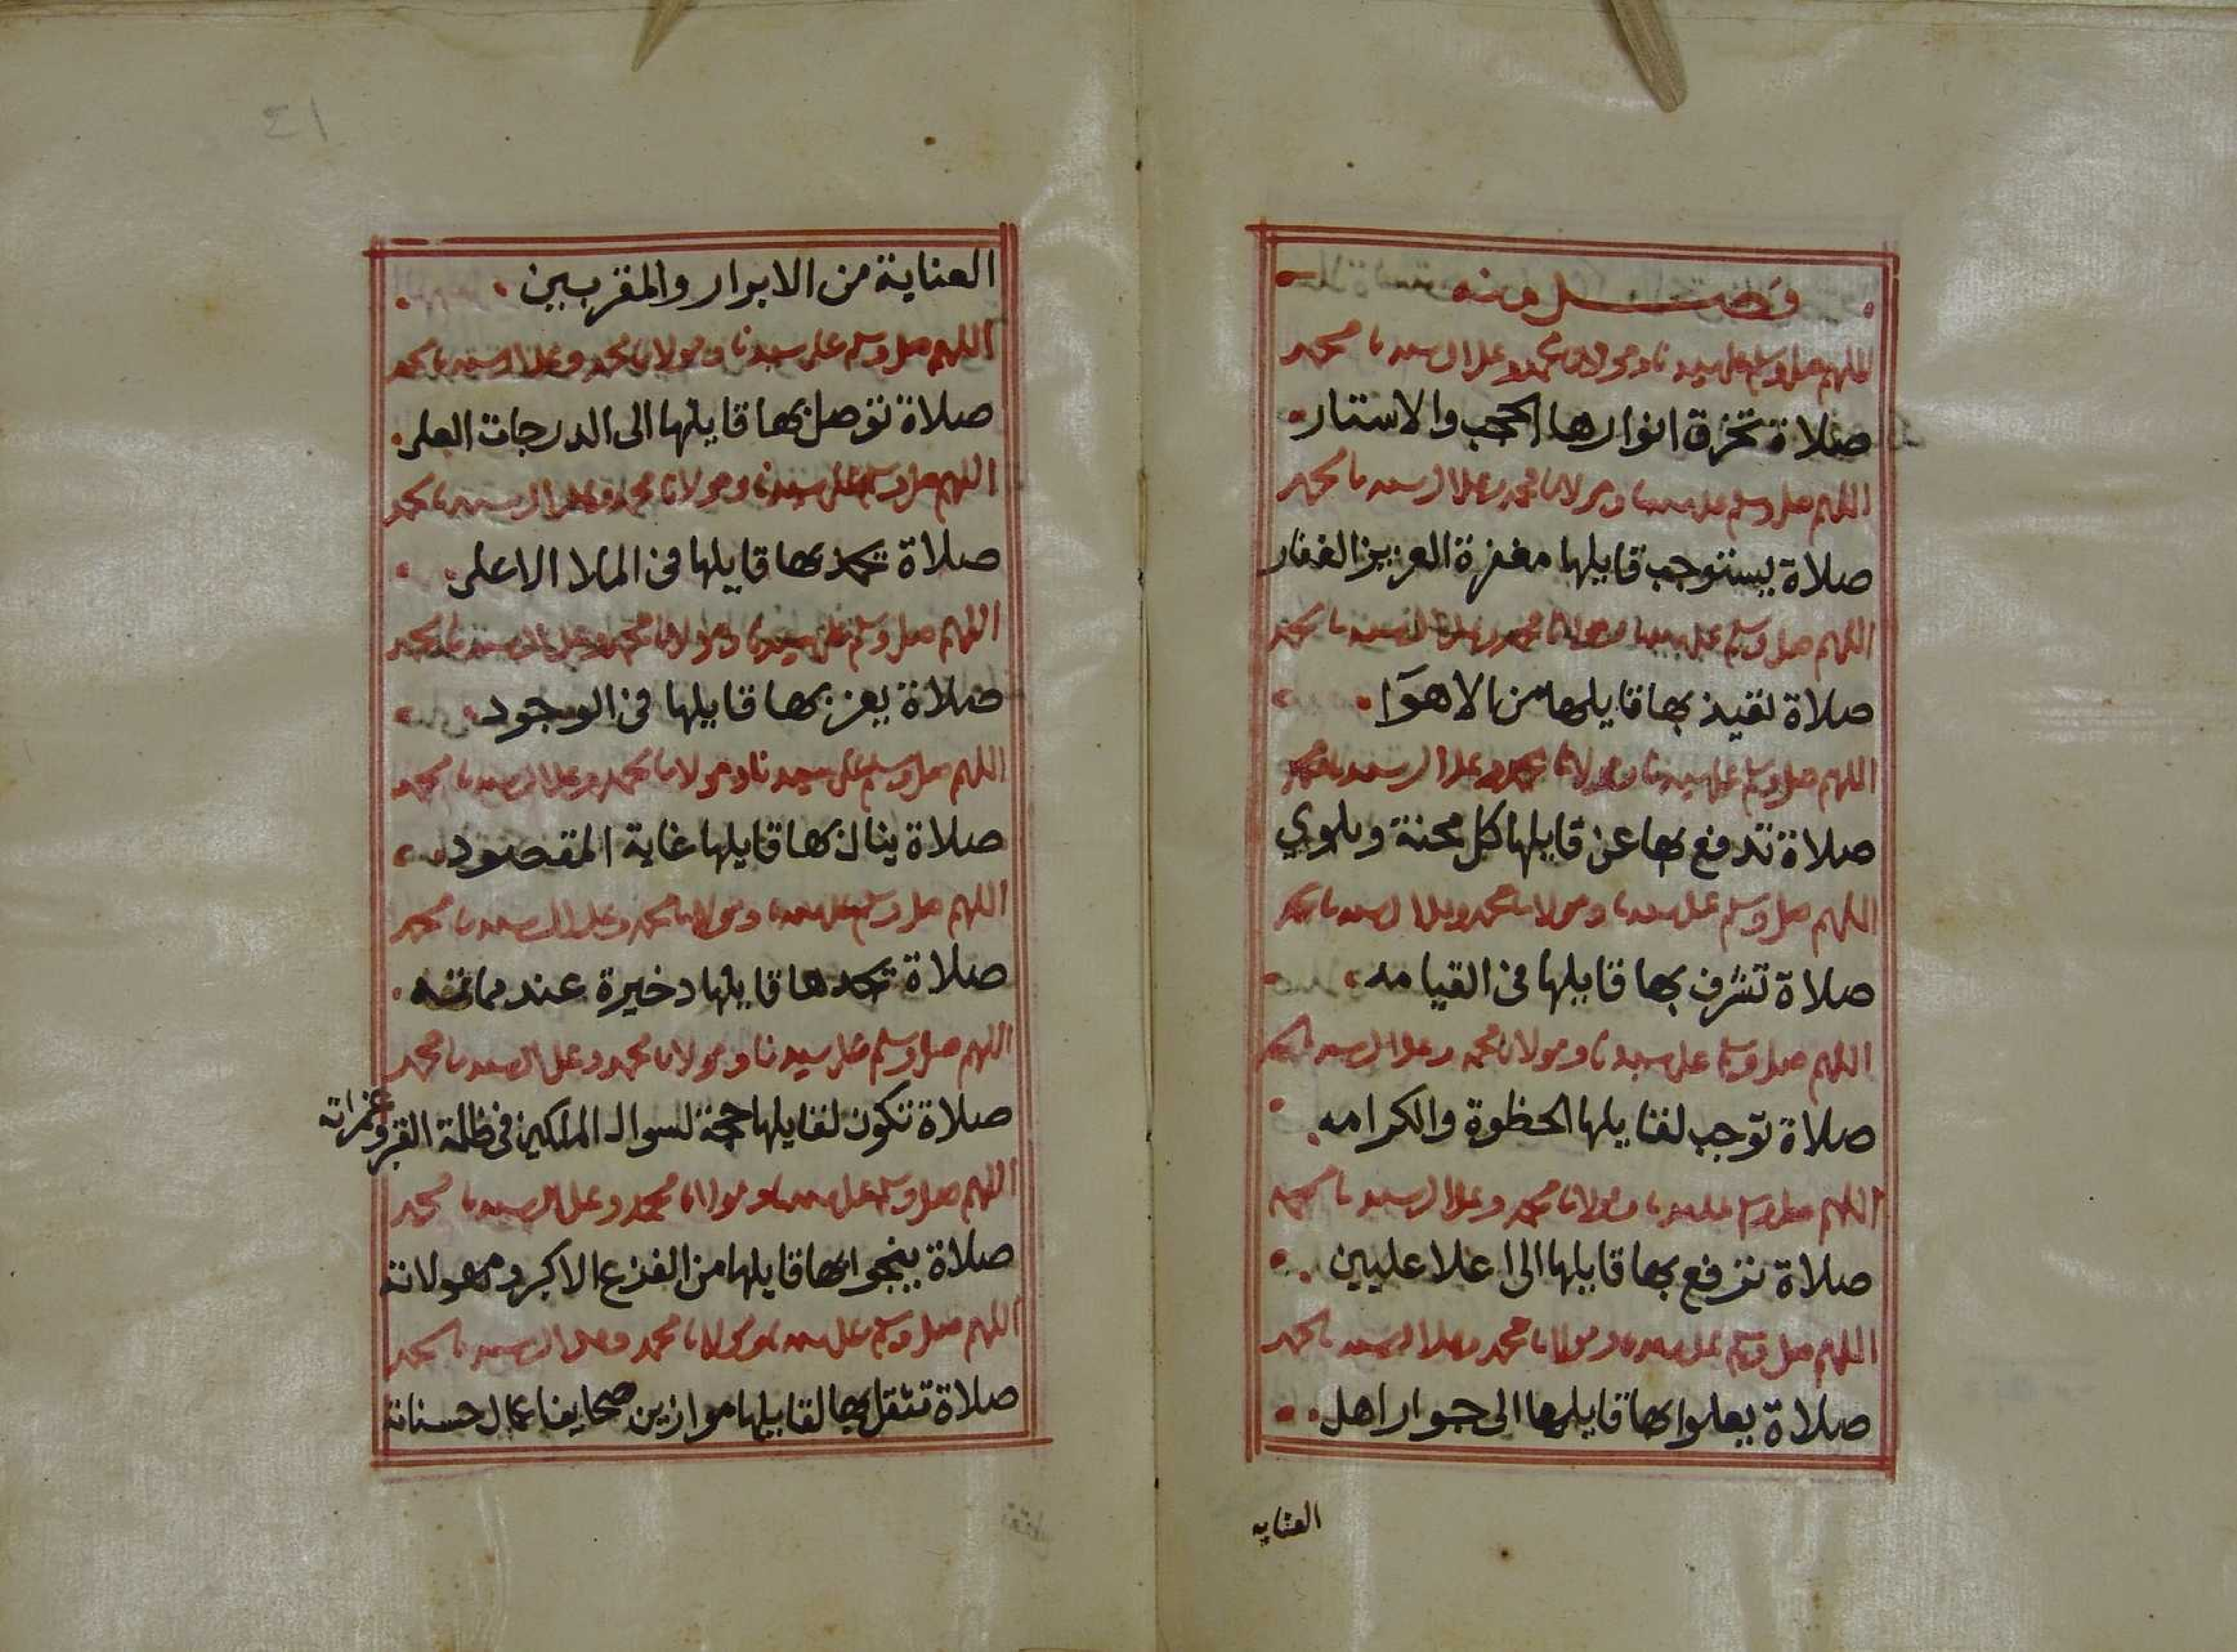 فصل منه
اللهم صل وسلم على سيدنا ومولانا محمد وعلى ال سيدنا محمد
صلاة تخرق انوارها الحجب والاستار
اللهم صل وسلم على سيدنا ومولانا محمد وعلى ال سيدنا محمد
صلاة يستوجب قايلها مغفرة العزيز الغفار
اللهم صل وسلم على سيدنا ومولانا محمد وعلى ال سيدنا محمد
صلاة تقيذ بها قايلها من الاهوآ
اللهم صل وسلم على سيدنا ومولانا محمد وعلى ال سيدنا محمد
صلاة تدفع بها عن قايلها كل محنة وبلوي
اللهم صل وسلم على سيدنا ومولانا محمد وعلى ال سيدنا محمد
صلاة تشرف بها قايلها في القيامه
اللهم صل وسلم على سيدنا ومولانا محمد وعلى ال سيدنا محمد
صلاة توجب لقايلها الحظوة والكرامه
اللهم صل وسلم على سيدنا ومولانا محمد وعلى ال سيدنا محمد
صلاة ترفع بها قايلها الى اعلا عليين
اللهم صل وسلم على سيدنا ومولانا محمد وعلى ال سيدنا محمد
صلاة يعلوا بها قايلها الى جوار اهل
العنايه
٤١
العناية من الابرار والمقربين
اللهم صل وسلم على سيدنا ومولانا محمد وعلى ال سيدنا محمد
صلاة توصل بها قايلها الى الدرجات العلى
اللهم صل وسلم على سيدنا ومولانا محمد وعلى ال سيدنا محمد
صلاة تحمد بها قايلها في الملا الاعلى
اللهم صل وسلم على سيدنا ومولانا محمد وعلى ال سيدنا محمد
صلاة يعز بها قايلها في الوجود
اللهم صل وسلم على سيدنا ومولانا محمد وعلى ال سيدنا محمد
صلاة ينال بها قايلها غاية المقصود
اللهم صل وسلم على سيدنا ومولانا محمد وعلى ال سيدنا محمد
صلاة تجدها قايلها دخيرة عند مماته
اللهم صل وسلم على سيدنا ومولانا محمد وعلى ال سيدنا محمد
صلاة تكون لقايلها حجة لسوال الملكين في ظلمة القبر وغمراته
اللهم صل وسلم على سيدنا ومولانا محمد وعلى ال سيدنا محمد
صلاة ينجوا بها قايلها من الفزع الاكبر ومهولاته
اللهم صل وسلم على سيدنا ومولانا محمد وعلى ال سيدنا محمد
صلاة تثقل بها لقايلها موازين صحايف اعمال حسناته